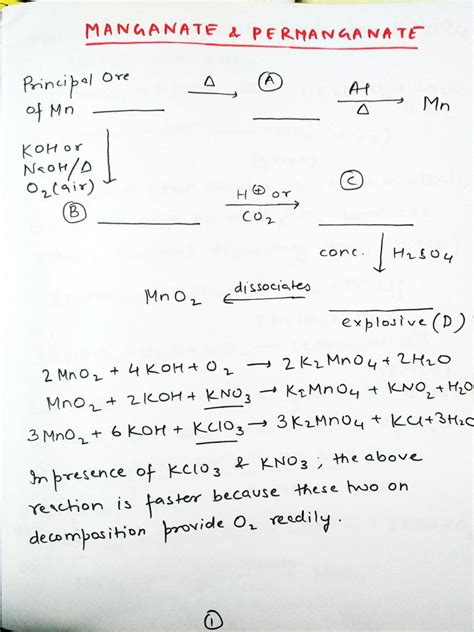 MANGANATE & PERMANGANATE
Principal Ore of Mn ______ Δ → (A) ______ Al Δ → Mn
KOH or
NaOH/Δ
O2 (air)
(B) ______ H⊕ or CO2 → (C) ______
conc. ↓ H2SO4
MnO2 ← dissociates ______
explosive (D)
2 MnO2 + 4 KOH + O2 → 2 K2MnO4 + 2H2O
MnO2 + 2KOH + KNO3 → K2MnO4 + KNO2 + H2O
3 MnO2 + 6 KOH + KClO3 → 3 K2MnO4 + KCl + 3H2O
In presence of KClO3 & KNO3 ; the above
reaction is faster because these two on
decomposition provide O2 readily.
1